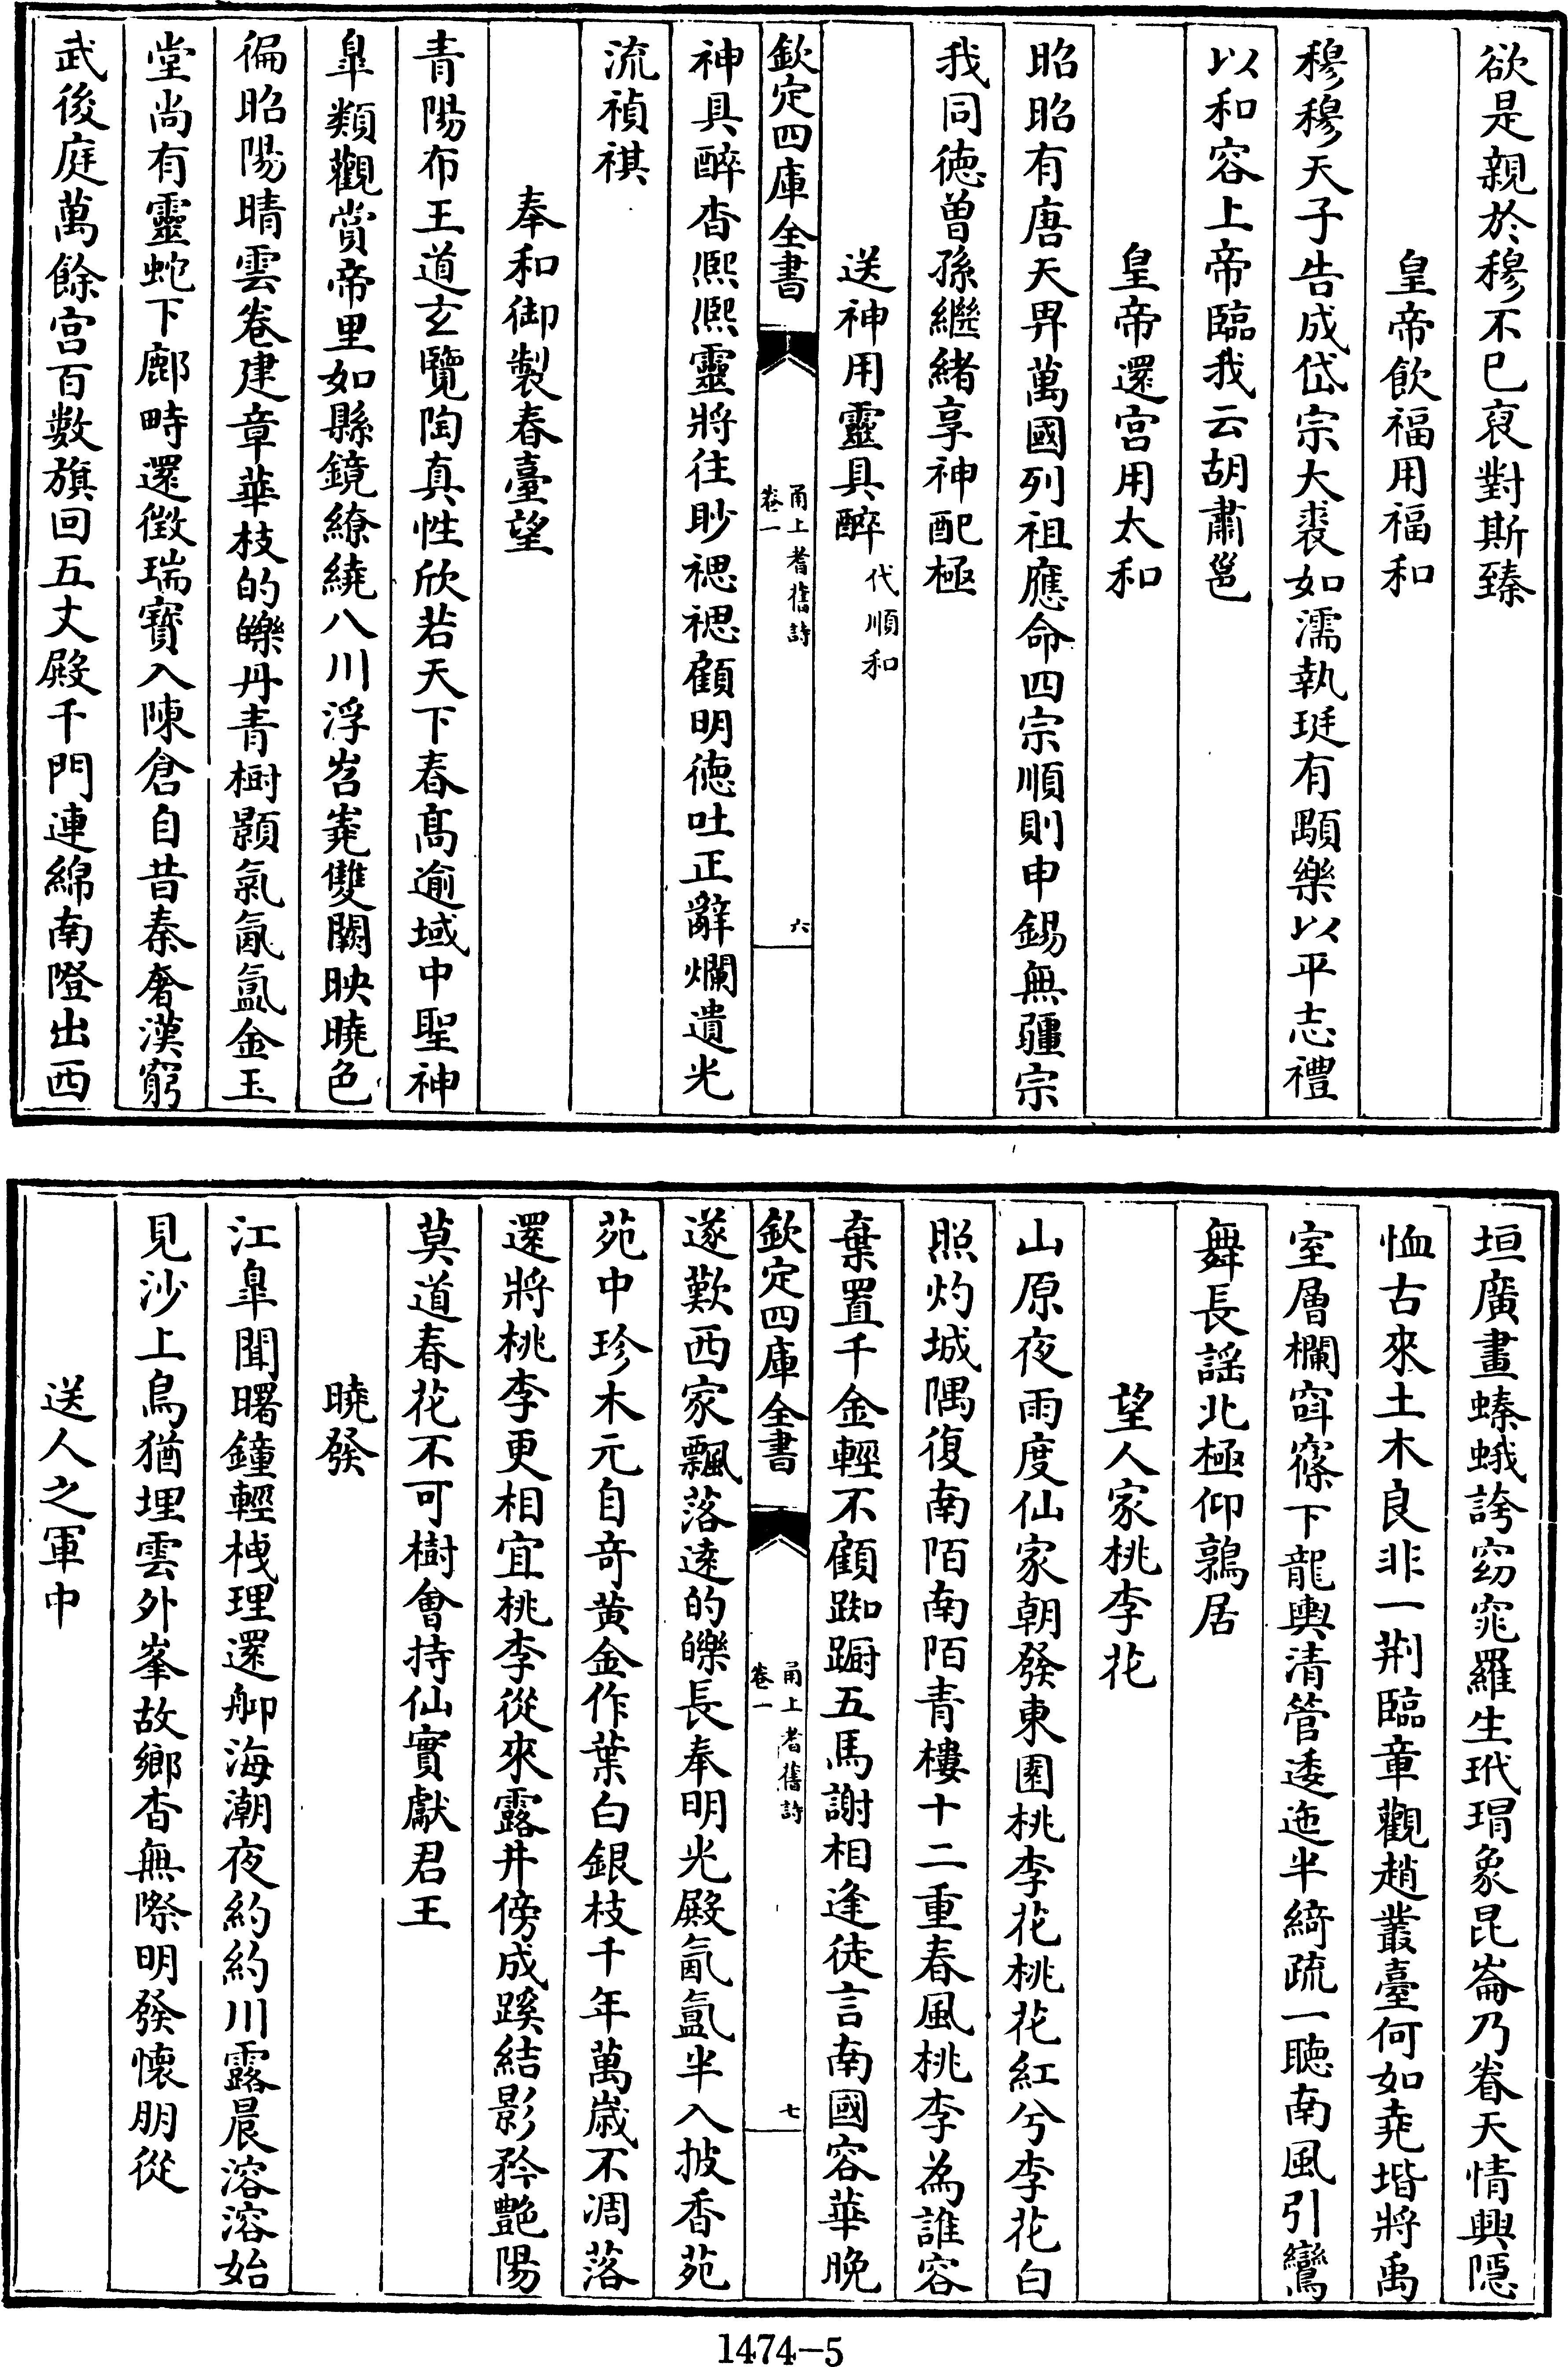 欲是親於穆不已裒對斯臻
皇帝飲福用福和
穆穆天子告成岱宗大裘如濡執珽有顒樂以平志禮
以和容上帝臨我云胡肅邕
皇帝還宫用太和
昭昭有唐天畀萬國列祖應命四宗順則申錫無疆宗
我同徳曽孫繼緒享神配極
送神用靈具醉代順和
欽定四庫全書
甬上耆舊詩
卷一
六
神具醉杳熈熈靈將往眇禗禗顧明徳吐正辭爛遺光
流禎祺
奉和御製春臺望
青陽布王道玄覽陶真性欣若天下春髙逾域中聖神
臯類觀賞帝里如縣鏡繚繞八川浮岧嶤雙闕映曉色
徧昭陽晴雲卷建章華枝的皪丹青樹顥氣氤氲金玉
堂尚有靈蛇下鄜畤還徴瑞寳入陳倉自昔秦奢漢窮
武後庭萬餘宫百數旗回五丈殿千門連綿南隥出西
垣廣畫螓蛾誇窈窕羅生玳瑁象昆崙乃眷天情興隱
恤古來土木良非一荆臨章觀趙叢臺何如堯堦將禹
室層欄窅窱下龍輿清管逶迤半綺疏一聴南風引鸞
舞長謡北極仰鶉居
望人家桃李花
山原夜雨度仙家朝發東園桃李花桃花紅兮李花白
照灼城隅復南陌南陌青樓十二重春風桃李為誰容
棄置千金輕不顧踟蹰五馬謝相逢徒言南國容華晚
欽定四庫全書
甬上耆舊詩
卷一
七
遂歎西家飄落逺的皪長奉明光殿氤氲半入披香苑
苑中珍木元自竒黄金作葉白銀枝千年萬嵗不凋落
還將桃李更相宜桃李從來露井傍成蹊結影矜艶陽
莫道春花不可樹會持仙實獻君王
曉發
江臯聞曙鐘輕栧理還舼海潮夜約約川露晨溶溶始
見沙上鳥猶埋雲外峯故鄉杳無際明發懷朋從
送人之軍中
1474-5